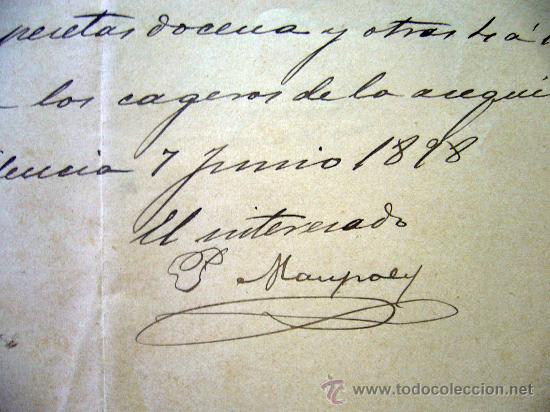 pesetas docena y otras
los cageros de la acequi
lencia 7 Junio 1898
El interesado
P Maupoey
TC todocoleccion.net
www.todocoleccion.net